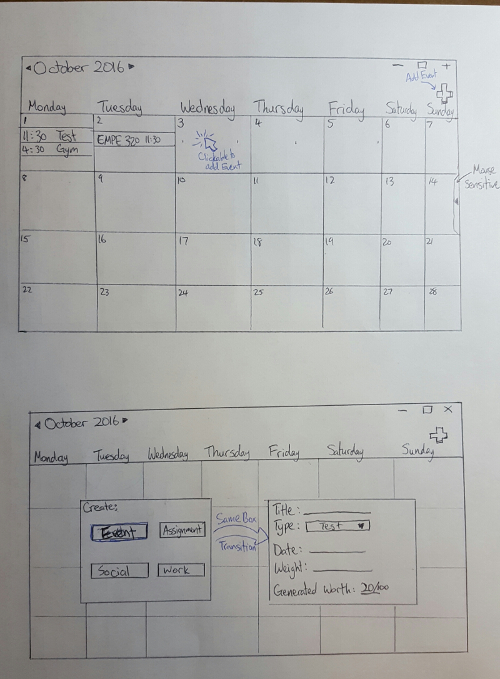 October 2016
Add Event
Monday Tuesday Wednesday Thursday Friday Saturday Sunday
1 2 3 4 5 6 7
11:30 Test
4:30 Gym
EMPE 320 11:30
Clickable to
add Event
8 9 10 11 12 13 14
Mouse
Sensitive
15 16 17 18 19 20 21
22 23 24 25 26 27 28
October 2016
Monday Tuesday Wednesday Thursday Friday Saturday Sunday
Create:
Event Assignment
Social Work
Same Box
Transition
Title:
Type: Test
Date:
Weight:
Generated Worth: 20/100